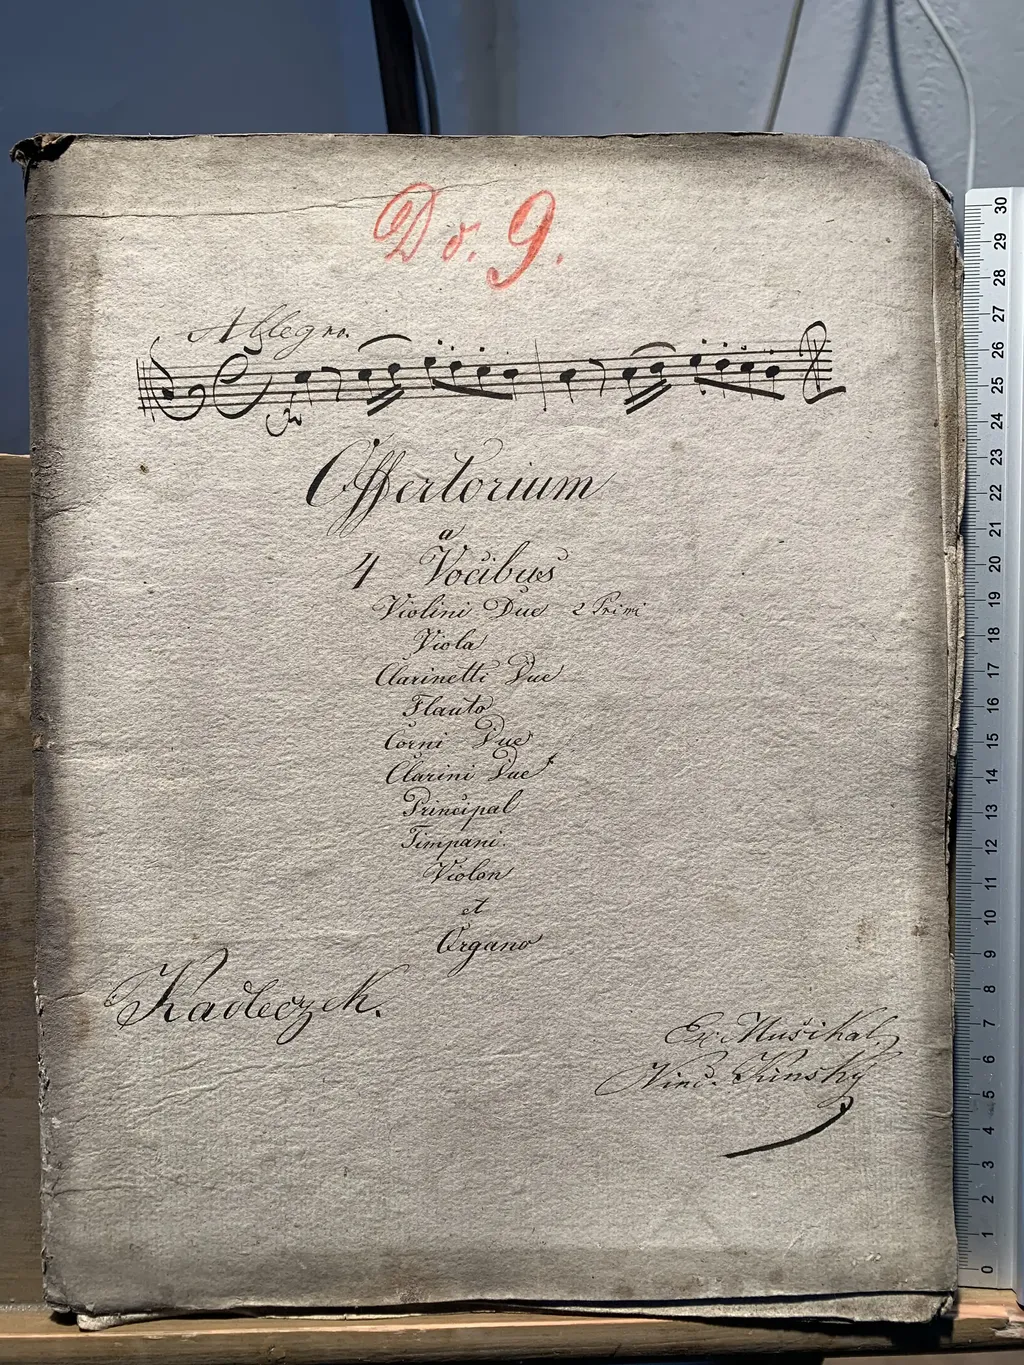 Do. 9.
Allegro.
Offertorium
a
4 Vocibus
Violini Due 2 Primi
Viola
Clarinetti Due
Flauto
Corni Due
Clarini Due
Principal
Timpani.
Violon
et
Organo
Kadleczek.
Ex Musikal.
Vinc. Kinsky
30
29
28
27
26
25
24
23
22
21
20
19
18
17
16
15
14
13
12
11
10
9
8
7
6
5
4
3
2
1
0